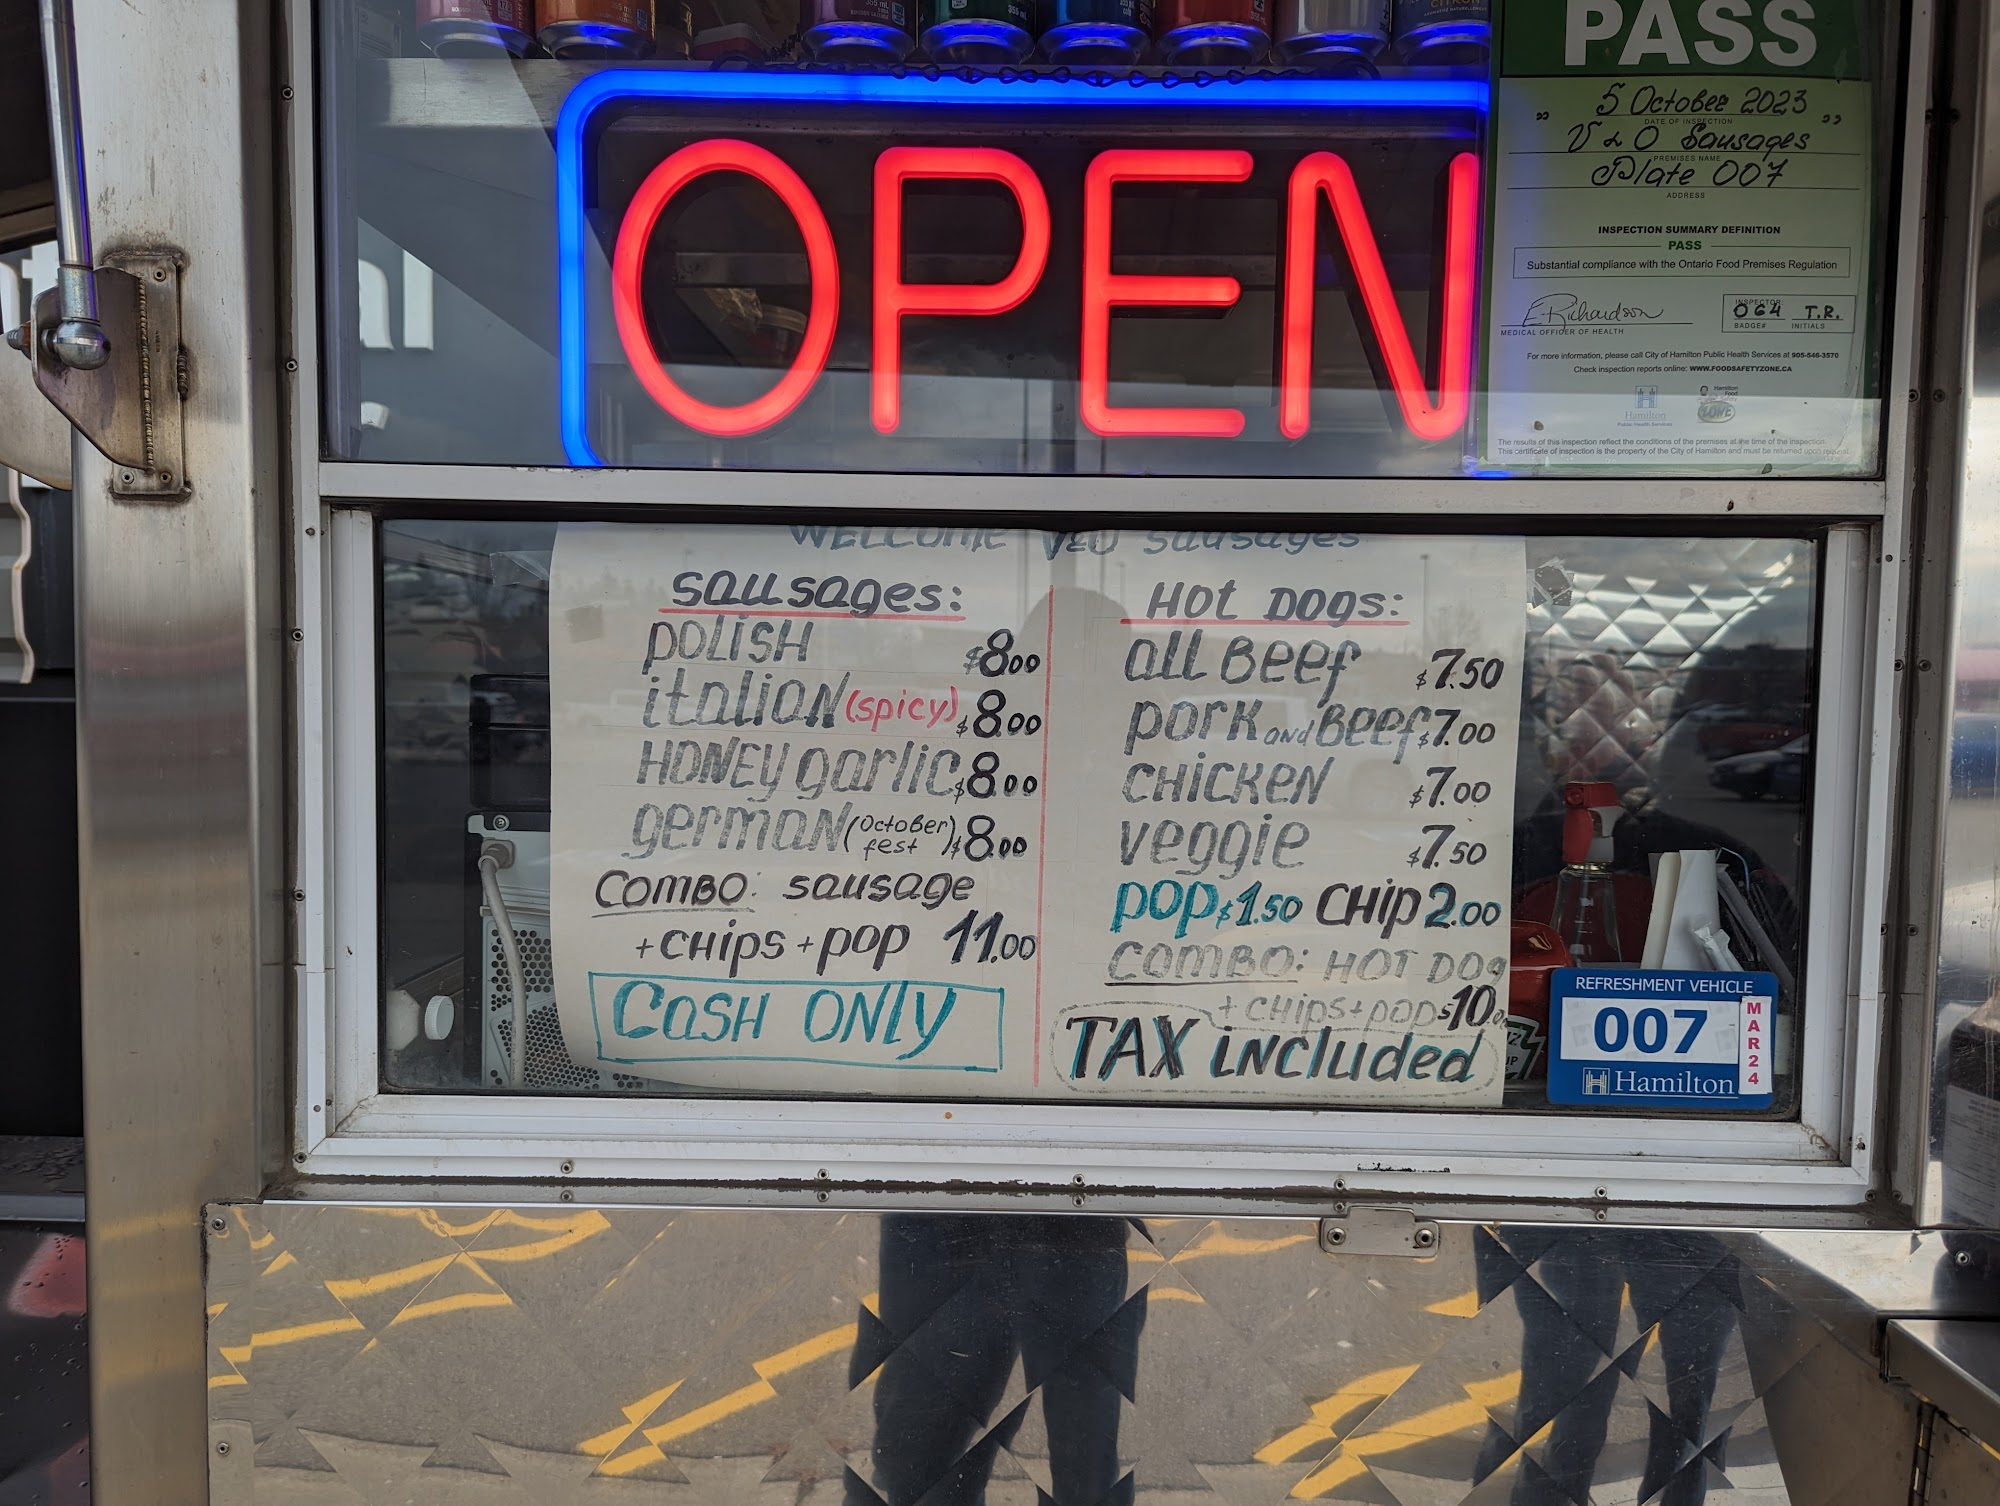 PASS
" 5 October 2023 "
DATE OF INSPECTION
V & O Sausages
PREMISES NAME
Plate 007
ADDRESS
INSPECTION SUMMARY DEFINITION
PASS
Substantial compliance with the Ontario Food Premises Regulation
E. Richardson
MEDICAL OFFICER OF HEALTH
INSPECTOR:
064 T.R.
BADGE# INITIALS
For more information, please call City of Hamilton Public Health Services at 905-546-3570
Check inspection reports online: WWW.FOODSAFETYZONE.CA
Hamilton
Public Health Services
Hamilton
Food
Safety
ZONE
The results of this inspection reflect the conditions of the premises at the time of the inspection.
This certificate of inspection is the property of the City of Hamilton and must be returned upon
OPEN
WELCOME V&O Sausages
sausages:
POLISH $8.00
italian (spicy) $8.00
HONEY garlic $8.00
german (October fest) $8.00
COMBO: sausage
+ CHips + pop 11.00
CasH ONLY
Hot Dogs:
all Beef $7.50
pork and Beef $7.00
CHiCKEN $7.00
veggie $7.50
pop $1.50 CHip 2.00
COMBO: HOT DOG
+ CHips + pop $10.00
TAX included
REFRESHMENT VEHICLE
007
MAR24
Hamilton